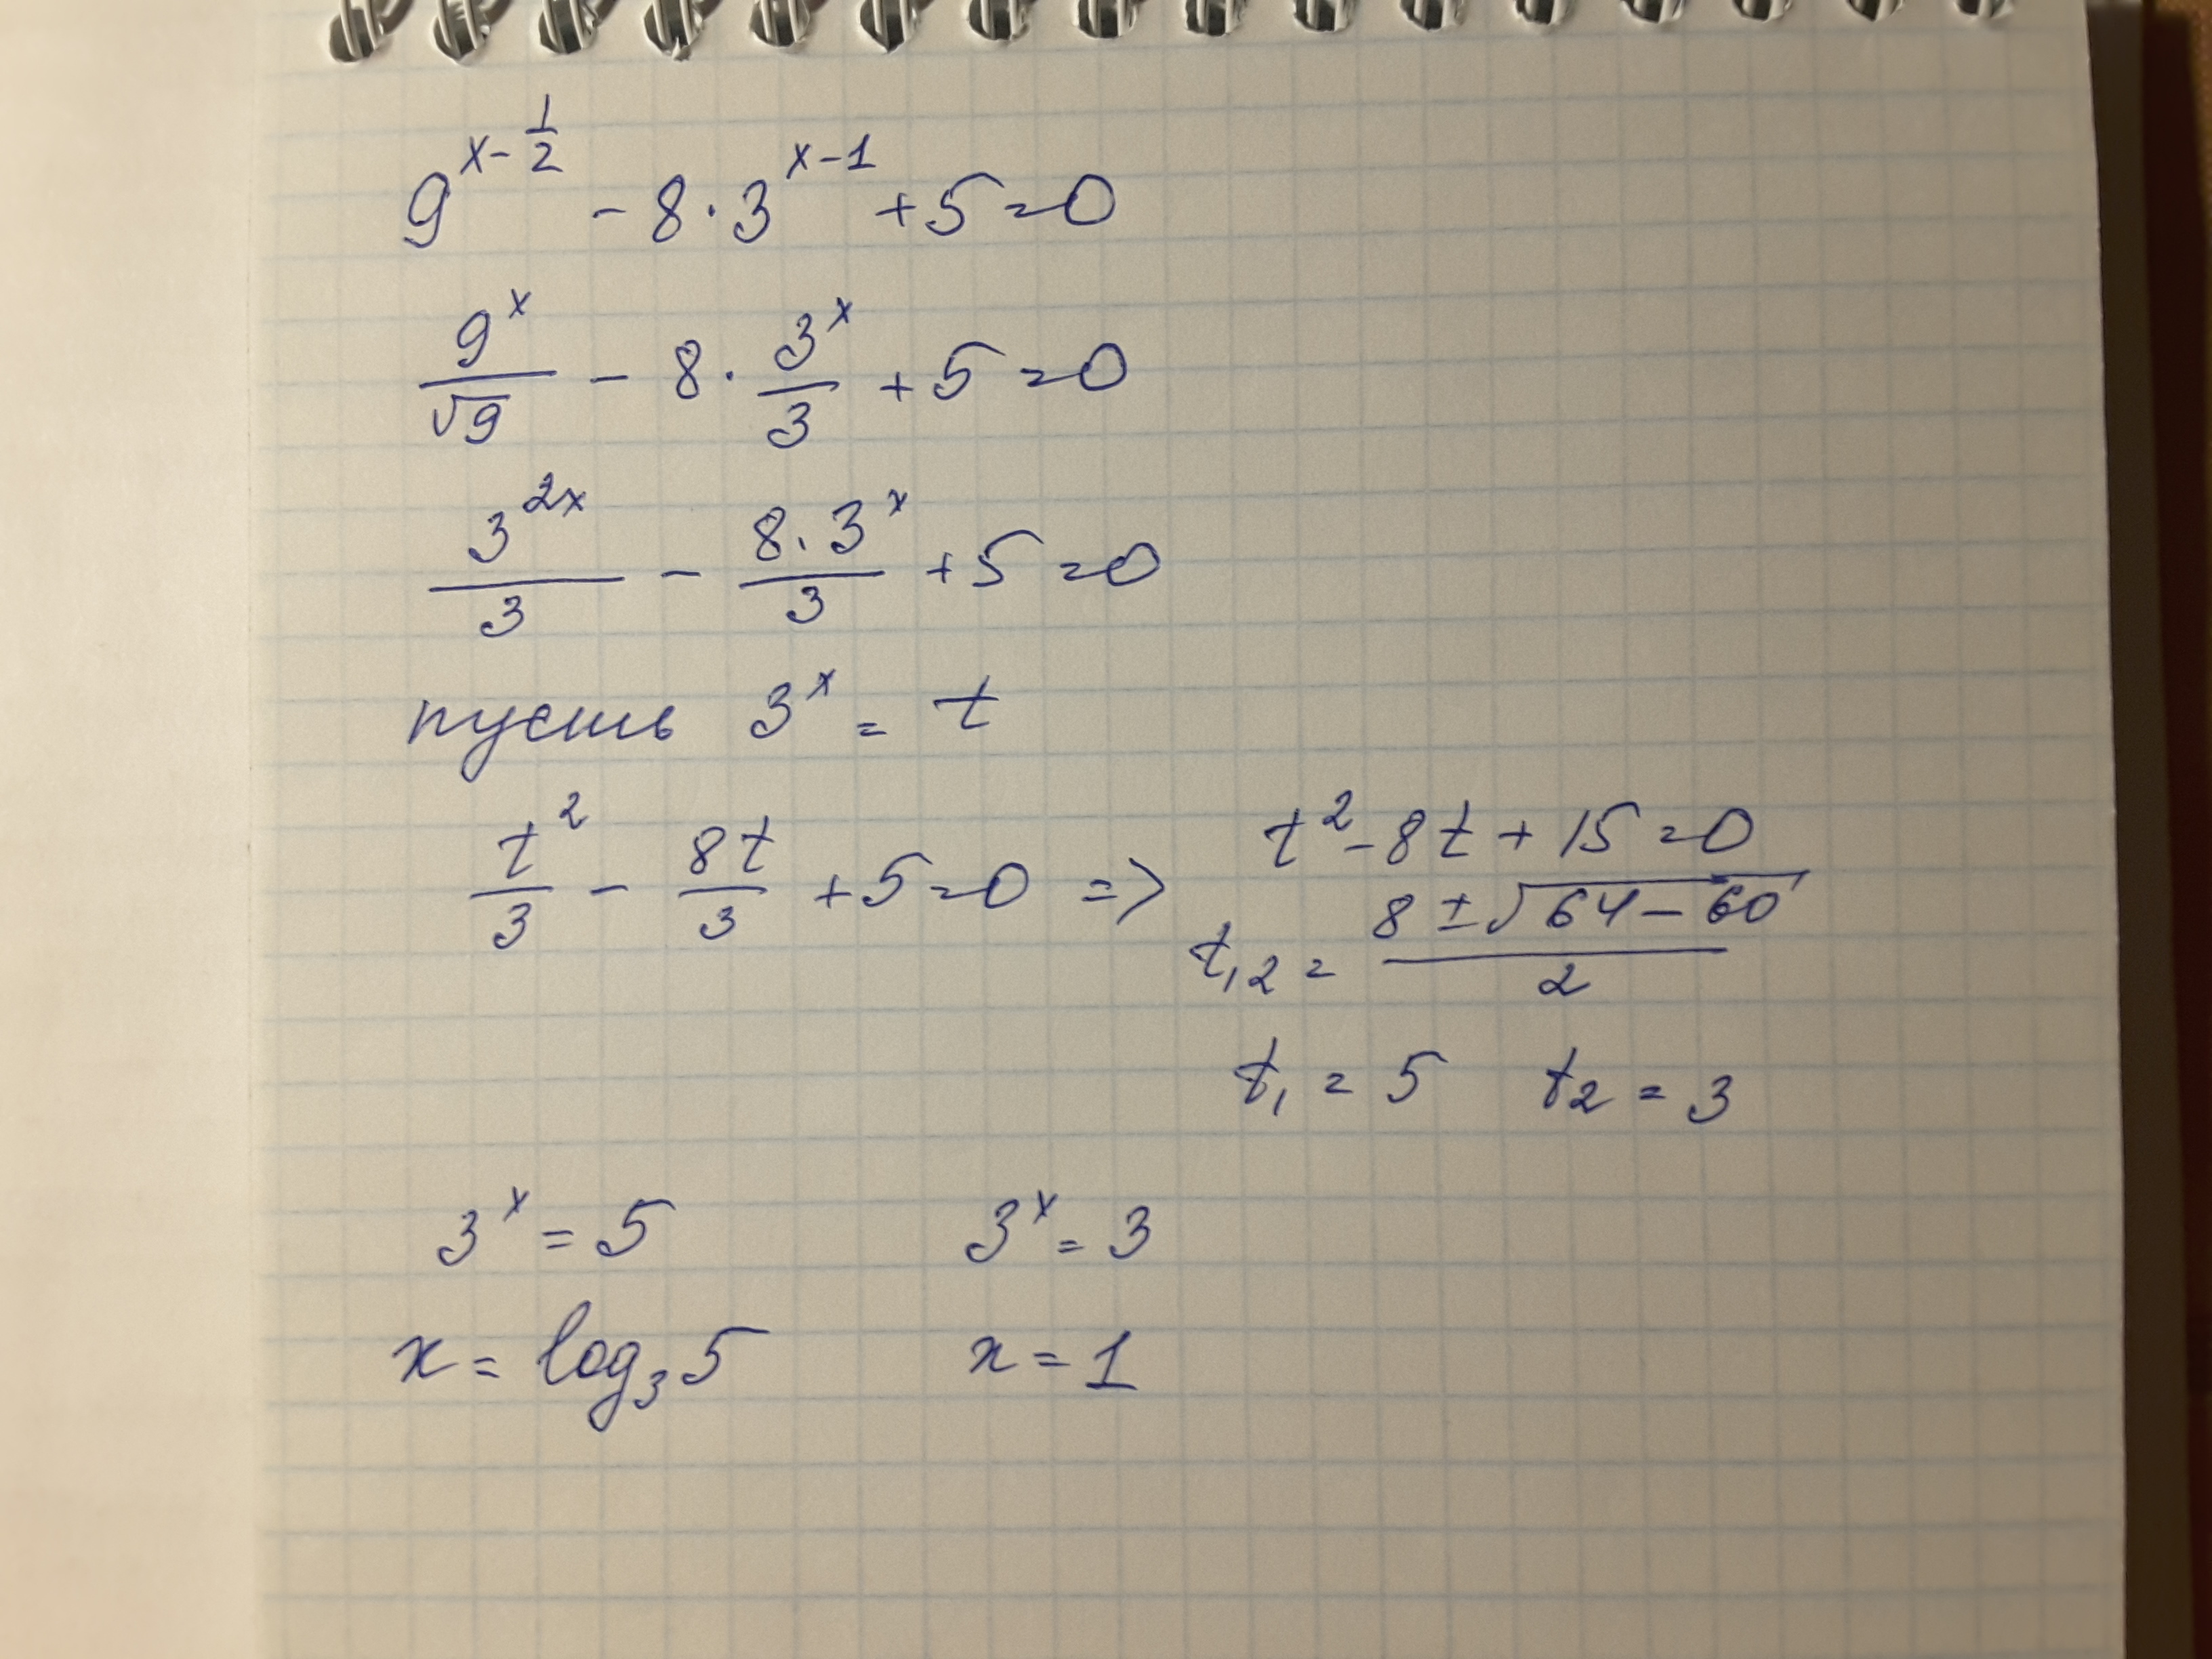 9^{x-\frac{1}{2}} - 8 · 3^{x-1} + 5 = 0
\frac{9^x}{\sqrt{9}} - 8 · \frac{3^x}{3} + 5 = 0
\frac{3^{2x}}{3} - \frac{8 · 3^x}{3} + 5 = 0
пусть 3^x = t
\frac{t^2}{3} - \frac{8t}{3} + 5 = 0 => t^2 - 8t + 15 = 0
t_{1,2} = \frac{8 ± \sqrt{64 - 60}}{2}
t_1 = 5 t_2 = 3
3^x = 5 3^x = 3
x = log_3 5 x = 1